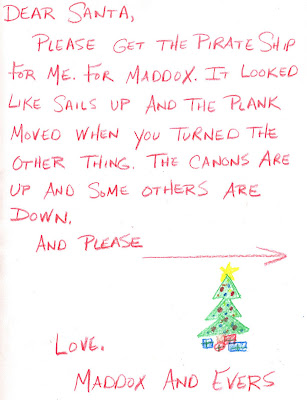 DEAR SANTA,
PLEASE GET THE PIRATE SHIP
FOR ME. FOR MADDOX. IT LOOKED
LIKE SAILS UP AND THE PLANK
MOVED WHEN YOU TURNED THE
OTHER THING. THE CANONS ARE
UP AND SOME OTHERS ARE
DOWN.
AND PLEASE
LOVE.
MADDOX AND EVERS